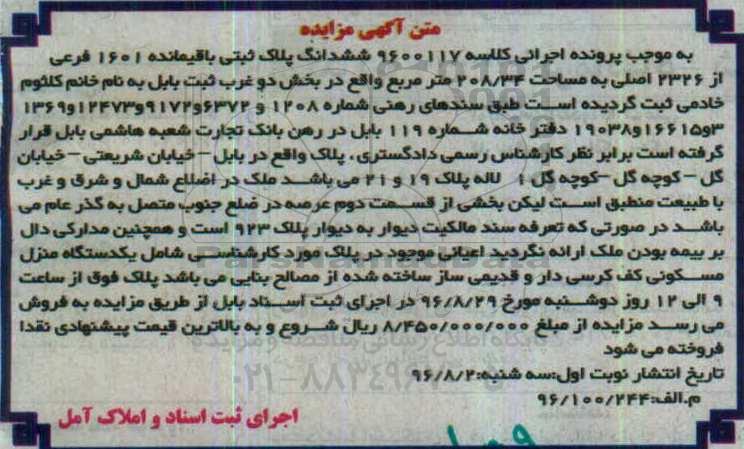 متن آگهی مزایده
به موجب پرونده اجرائی کلاسه ۹۶۰۰۱۱۷ ششدانگ پلاک ثبتی باقیمانده ۱۶۰۱ فرعی
از ۲۳۲۶ اصلی به مساحت ۲۰۸/۳۴ متر مربع واقع در بخش دو غرب ثبت بابل به نام خانم کلثوم
خادمی ثبت گردیده است طبق سندهای رهنی شماره ۱۲۰۸ و ۶۳۷۲و۹۱۷۲و۱۲۴۷۳و۱۳۶۹
۳و۱۶۶۱۵و۱۹۰۳۸ دفتر خانه شماره ۱۱۹ بابل در رهن بانک تجارت شعبه هاشمی بابل قرار
گرفته است برابر نظر کارشناس رسمی دادگستری، پلاک واقع در بابل – خیابان شریعتی – خیابان
گل – کوچه گل –کوچه گل ۱ لاله پلاک ۱۹ و ۲۱ می باشد ملک در اضلاع شمال و شرق و غرب
با طبیعت منطبق است لیکن بخشی از قسمت دوم عرصه در ضلع جنوب متصل به گذر عام می
باشد در صورتی که تعرفه سند مالکیت دیوار به دیوار پلاک ۹۲۳ است و همچنین مدارکی دال
بر بیمه بودن ملک ارائه نگردید اعیانی موجود در پلاک مورد کارشناسی شامل یکدستگاه منزل
مسکونی کف کرسی دار و قدیمی ساز ساخته شده از مصالح بنایی می باشد پلاک فوق از ساعت
۹ الی ۱۲ روز دوشنبه مورخ ۹۶/۸/۲۹ در اجرای ثبت اسناد بابل از طریق مزایده به فروش
می رسد مزایده از مبلغ ۸/۴۵۰/۰۰۰/۰۰۰ ریال شروع و به بالاترین قیمت پیشنهادی نقدا
فروخته می شود
تاریخ انتشار نوبت اول:سه شنبه:۹۶/۸/۲
م.الف:۹۶/۱۰۰/۲۴۴
اجرای ثبت اسناد و املاک آمل